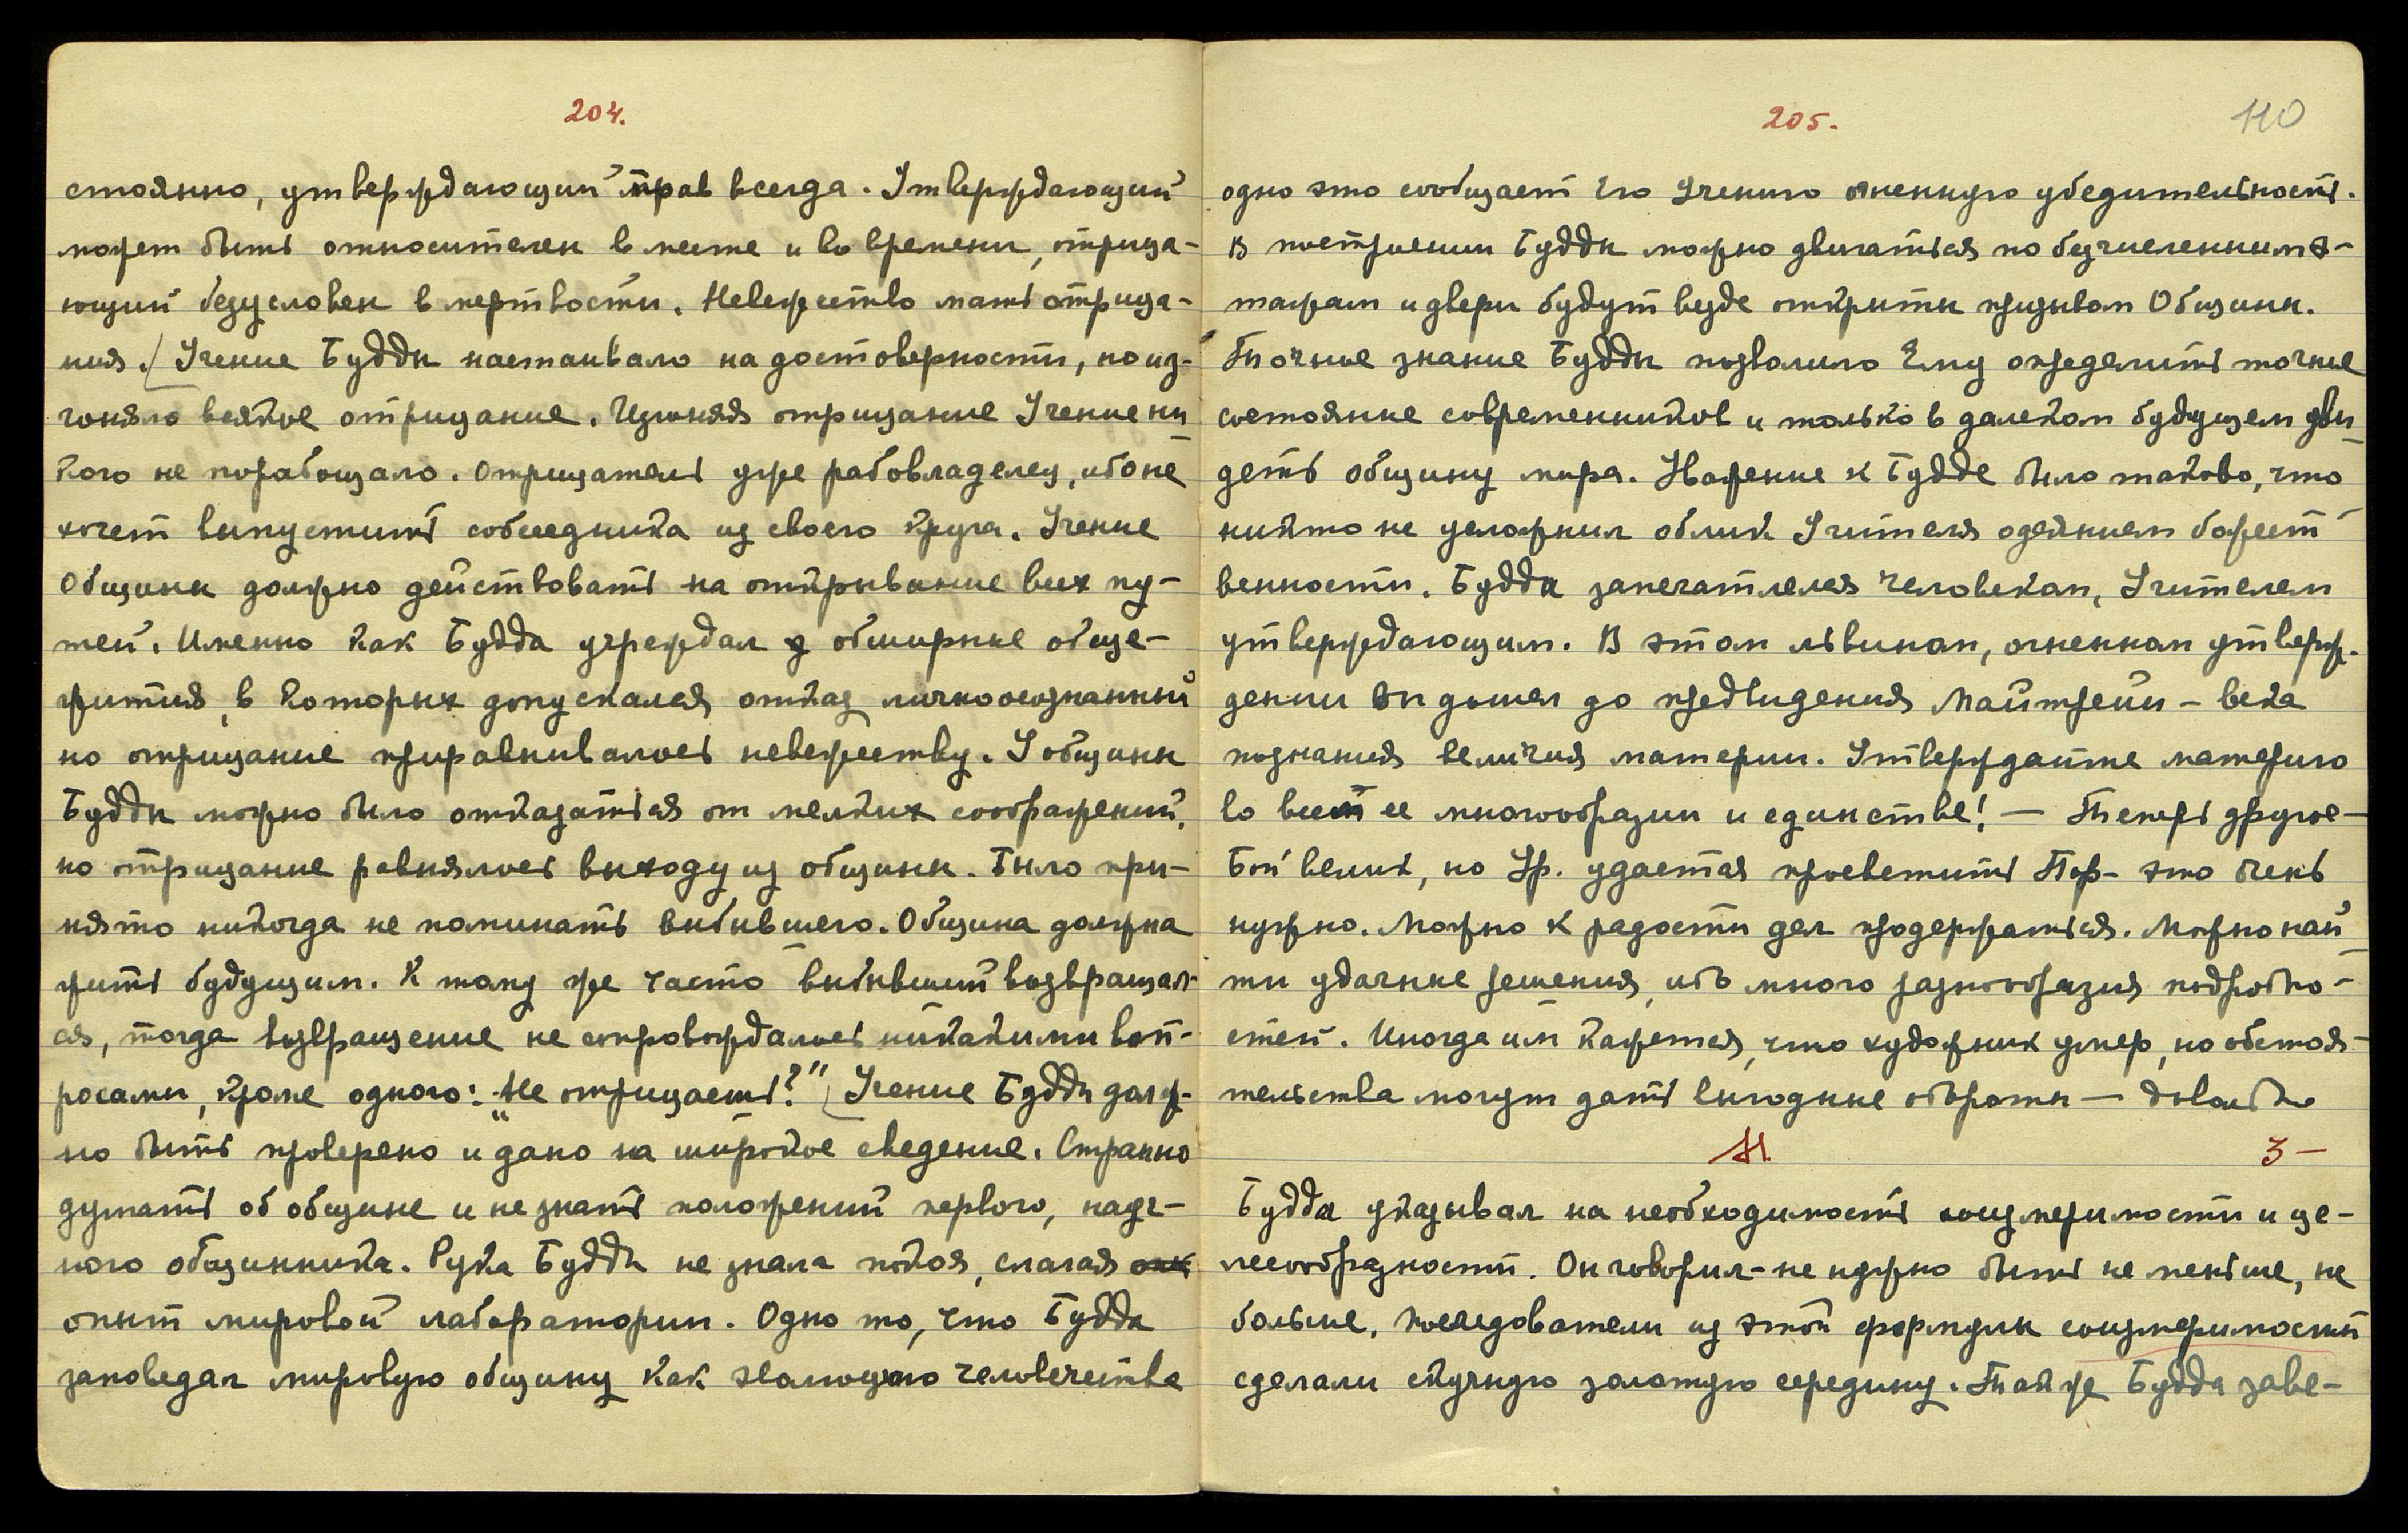 204.
стоянно, утверждающий прав всегда. Утверждающий
может быть относителен в месте и во времени, отрица-
ющий безусловен в мертвости. Невежество мать отрица-
ния. / Учение Будды настаивало на достоверности, но из-
гоняло всякое отрицание. Изгоняя отрицание Учение ни
кого не порабощало. Отрицатель уже рабовладелец, ибо не
хочет выпустить собеседника из своего круга. Учение
Общины должно действовать на открывание всех пу-
тей. Именно как Будда учреждал обширные обще-
жития, в которых допускался отказ лично осознанный
но отрицание приравнивалось невежеству. У общины
Будды можно было отказаться от мелких соображений,
но отрицание равнялось выходу из общины. Было при-
нято никогда не поминать выбывшего. Община должна
жить будущим. К тому же часто выбывший возвращал-
ся, тогда возвращение не сопровождалось никакими воп-
росами, кроме одного: „Не отрицаешь?" / Учение Будды долж-
но быть проверено и дано на широкое сведение. Странно
думать об общине и не знать положений первого, науч-
ного общинника. Рука Будды не знала покоя, слагая
опыт мировой лаборатории. Одно то, что Будда
заповедал мировую общину как эволюцию человечества
205.
110
одно это сообщает Его Учению огненную убедительность.
В построении Будды можно двигаться по безчисленным э-
тажам и двери будут везде открыты призывом Общины.
Точное знание Будды позволило Ему определить точные
состояние современников и только в далеком будущем ви
деть общину мира. Уважение к Будде было таково, что
никто не усложнил облик Учителя одеянием божест-
венности. Будда запечатлелся человеком, Учителем
утверждающим. В этом львином, огненном утверж-
дении Он дошел до предвидения Майтрейи - века
познания величия материи. Утверждайте материю
во всем ее многообразии и единстве! — Теперь другое —
Бой велик, но Ур. удается просветить Пор- это очень
нужно. Можно к радости дел продержаться. Можно най
ти удачные решения, ибо много разнообразия подробно-
стей. Иногда им кажется, что художник умер, но обстоя-
тельства могут дать выгодные обороты — довольно
3 —
Будда указывал на необходимость соизмеримости и це-
лесообразности. Он говорил - не нужно быть не меньше, не
больше. Последователи из этой формулы соизмеримости
сделали скучную золотую середину. Также Будда заве-